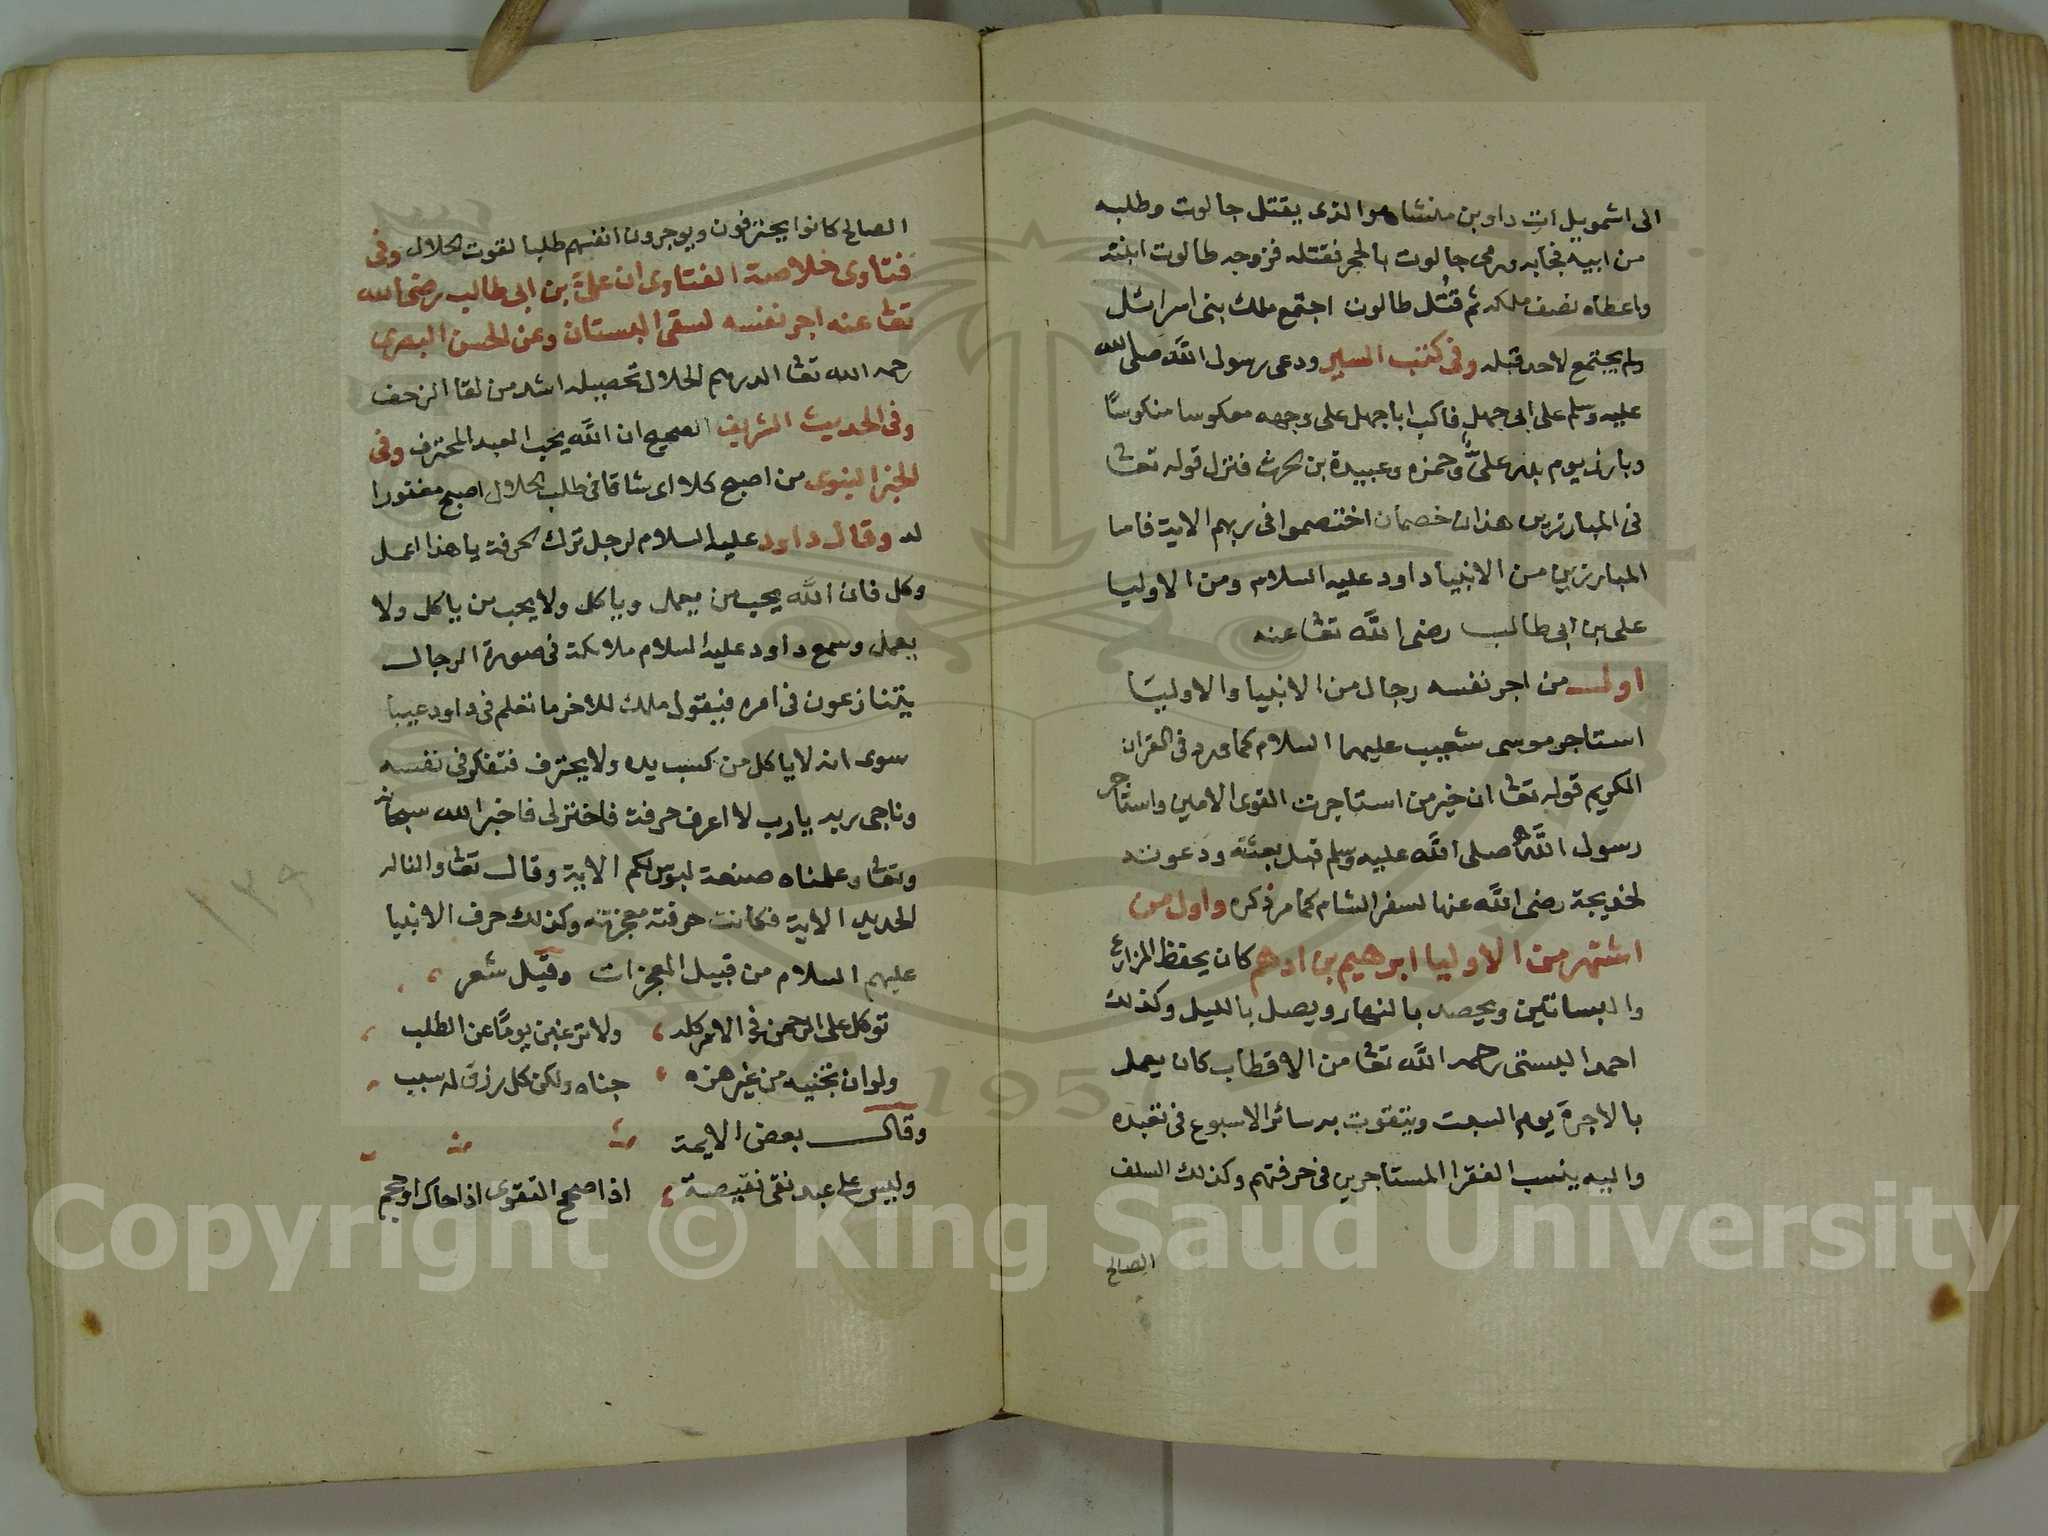 الى اشمويل ان داود بن منشا هوا لذى يقتل جالوت وطلبه
من ابيه فجابه ورمى جالوت بالحجر فقتله فزوجه طالوت ابنته
واعطاه نصف ملكه ثم قُتُل طالون اجتمع ملك بنى اسرائل
ولم يجتمع لاحد قبله وفى كتب السير ودعى رسول اللّه صلى الله
عليه وسلم على ابى جهل فاكب ابا جهل على وجهه معكوسا منكوسًا
وبارز يوم بدر علىٌّ وحمزه وعبيدة بن الحرث فنزل قوله تعا
فى المبارزين هذان خصمان اختصموا فى ربهم الاية فاما
المبارزين من الانبيا داود عليه السلام ومن الاوليا
على بن ابى طالب رضى اللّه تعا عنه
اول من اجر نفسه رجال من الانبيا والاوليا
استاجر موسى شعيب عليهما السلام كما ورد فى القران
الكريم قوله تعا ان خير من استاجرت القوى الامين واستاجر
رسول اللّه صلى اللّه عليه وسلم قبل بعثته ودعوته
لخديجة رضى اللّه عنها لسفر الشام كما مر ذكره واول من
اشتهر من الاوليا ابرهيم بن ادهم كان يحفظ المزارع
والبساتين ويحصد بالنهار ويصل بالليل وكذلك
احمد السبتى رحمه اللّه تعا من الاقطاب كان يعمل
بالاجرة يوم السبت ويتقوت به سائر الاسبوع فى تعبده
واليه ينسب الفقرا المستاجرين فى حرفتهم وكذلك السلف
الصالح
الصالح كانوا يحترفون ويوجرون انفسهم طلبا لقوت الحلال وفى
فتاوى خلاصة الفتاوى ان علىّ بن ابى طالب رضى الله
تعا عنه اجر نفسه لسقى البستان وعن الحسن البصرى
رحمه الله تعا الدرهم الحلال تحصيله اشد من لقا الزحف
وفى الحديث الشريف الصحيح ان اللّه يحب العبد المحترف وفى
الخبر النبوى من اصبح كلا اى شاقا فى طلب الحلال اصبح مغفورا
له وقال داود عليه السلام لرجل ترك الحرفة يا هذا اعمل
وكل فان اللّه يحب من يعمل وياكل ولا يحب من ياكل ولا
يعمل وسمع داود عليه السلام ملائكة فى صورة الرجال
يتنازعون فى امره فيقول ملك للاخر ما نعلم فى داود عيبا
سوى انه لا ياكل من كسب يده ولا يحترف فتفكر فى نفسه
وناجى ربه يا رب لا اعرف حرفة فاختر لى فاخبر الله سبحانه
وتعا وعلمناه صنعة لبوس لكم الاية وقال تعا والنا له
الحديد الاية فكانت حرفته معجزته وكذلك حرف الانبيا
عليهم السلام من قبيل المعجزات وقيل شعر
توكل على الرحمن فى الامر كله ولا ترغبن يومًا عن الطلب
ولو ان تجنيه من غير هزه جناه ولكن كل رزق له سبب
وقال بعض الايمة
وليس على عبد تقى نقيصة اذا صحح التقوى اذا حاك او حجم
١٣٩
1957
Copyright © King Saud University